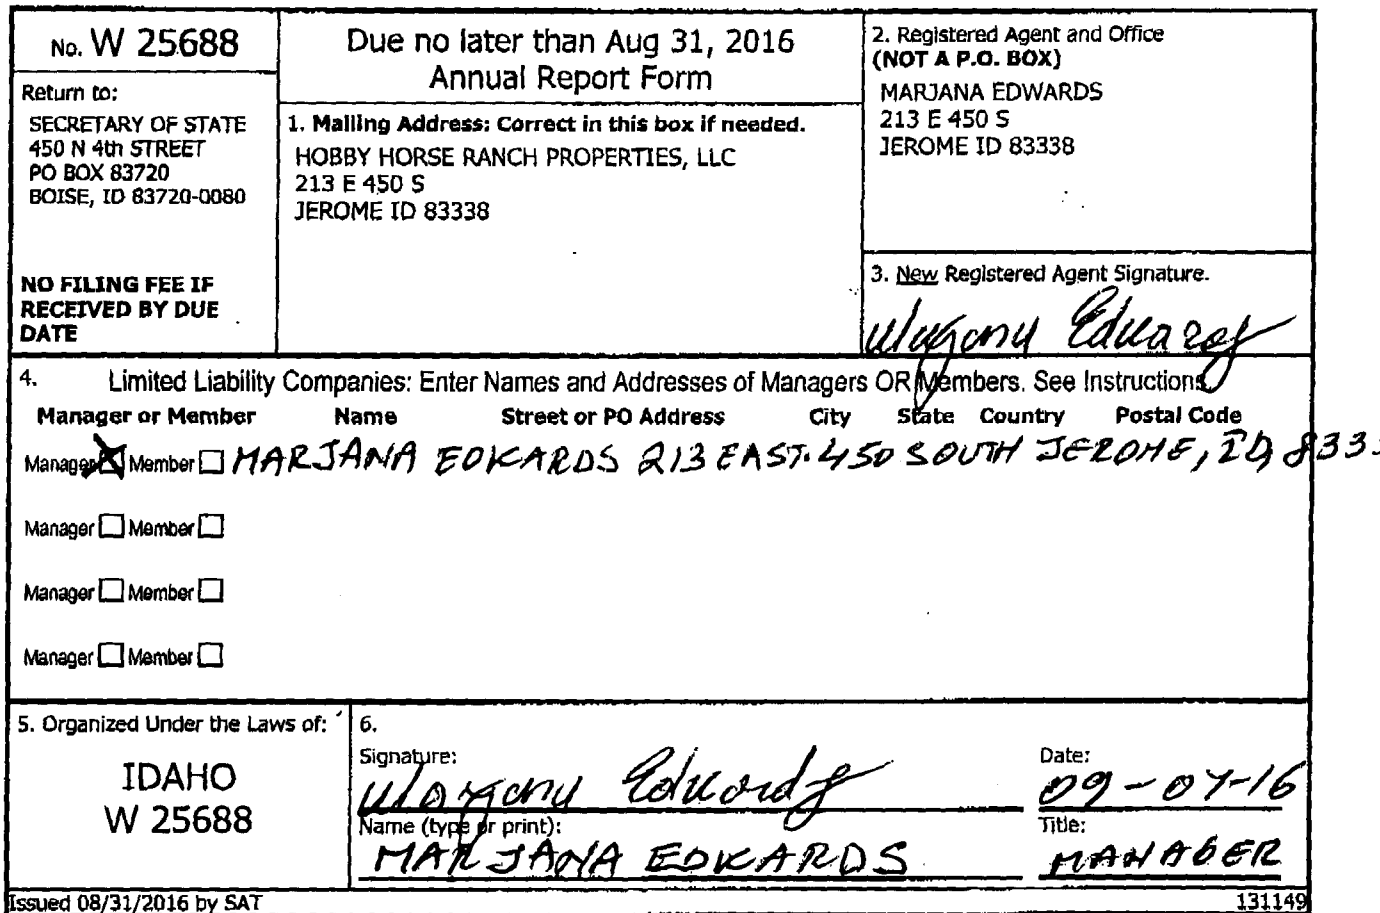 No. W 25688
Return to:
SECRETARY OF STATE
450 N 4th STREET
PO BOX 83720
BOISE, ID 83720-0080
NO FILING FEE IF
RECEIVED BY DUE
DATE
Due no later than Aug 31, 2016
Annual Report Form
1. Mailing Address: Correct in this box if needed.
HOBBY HORSE RANCH PROPERTIES, LLC
213 E 450 S
JEROME ID 83338
2. Registered Agent and Office
(NOT A P.O. BOX)
MARJANA EDWARDS
213 E 450 S
JEROME ID 83338
3. New Registered Agent Signature.
Marjana Edwards
4. Limited Liability Companies: Enter Names and Addresses of Managers OR Members. See Instructions.
Manager or Member Name Street or PO Address City State Country Postal Code
Manager Member MARJANA EDWARDS 213 EAST 450 SOUTH JEROME, ID, 8333
Manager Member
Manager Member
Manager Member
5. Organized Under the Laws of:
IDAHO
W 25688
6.
Signature: Date:
Marjana Edwards 09-07-16
Name (type or print): Title:
MARJANA EDWARDS MANAGER
Issued 08/31/2016 by SAT 131149